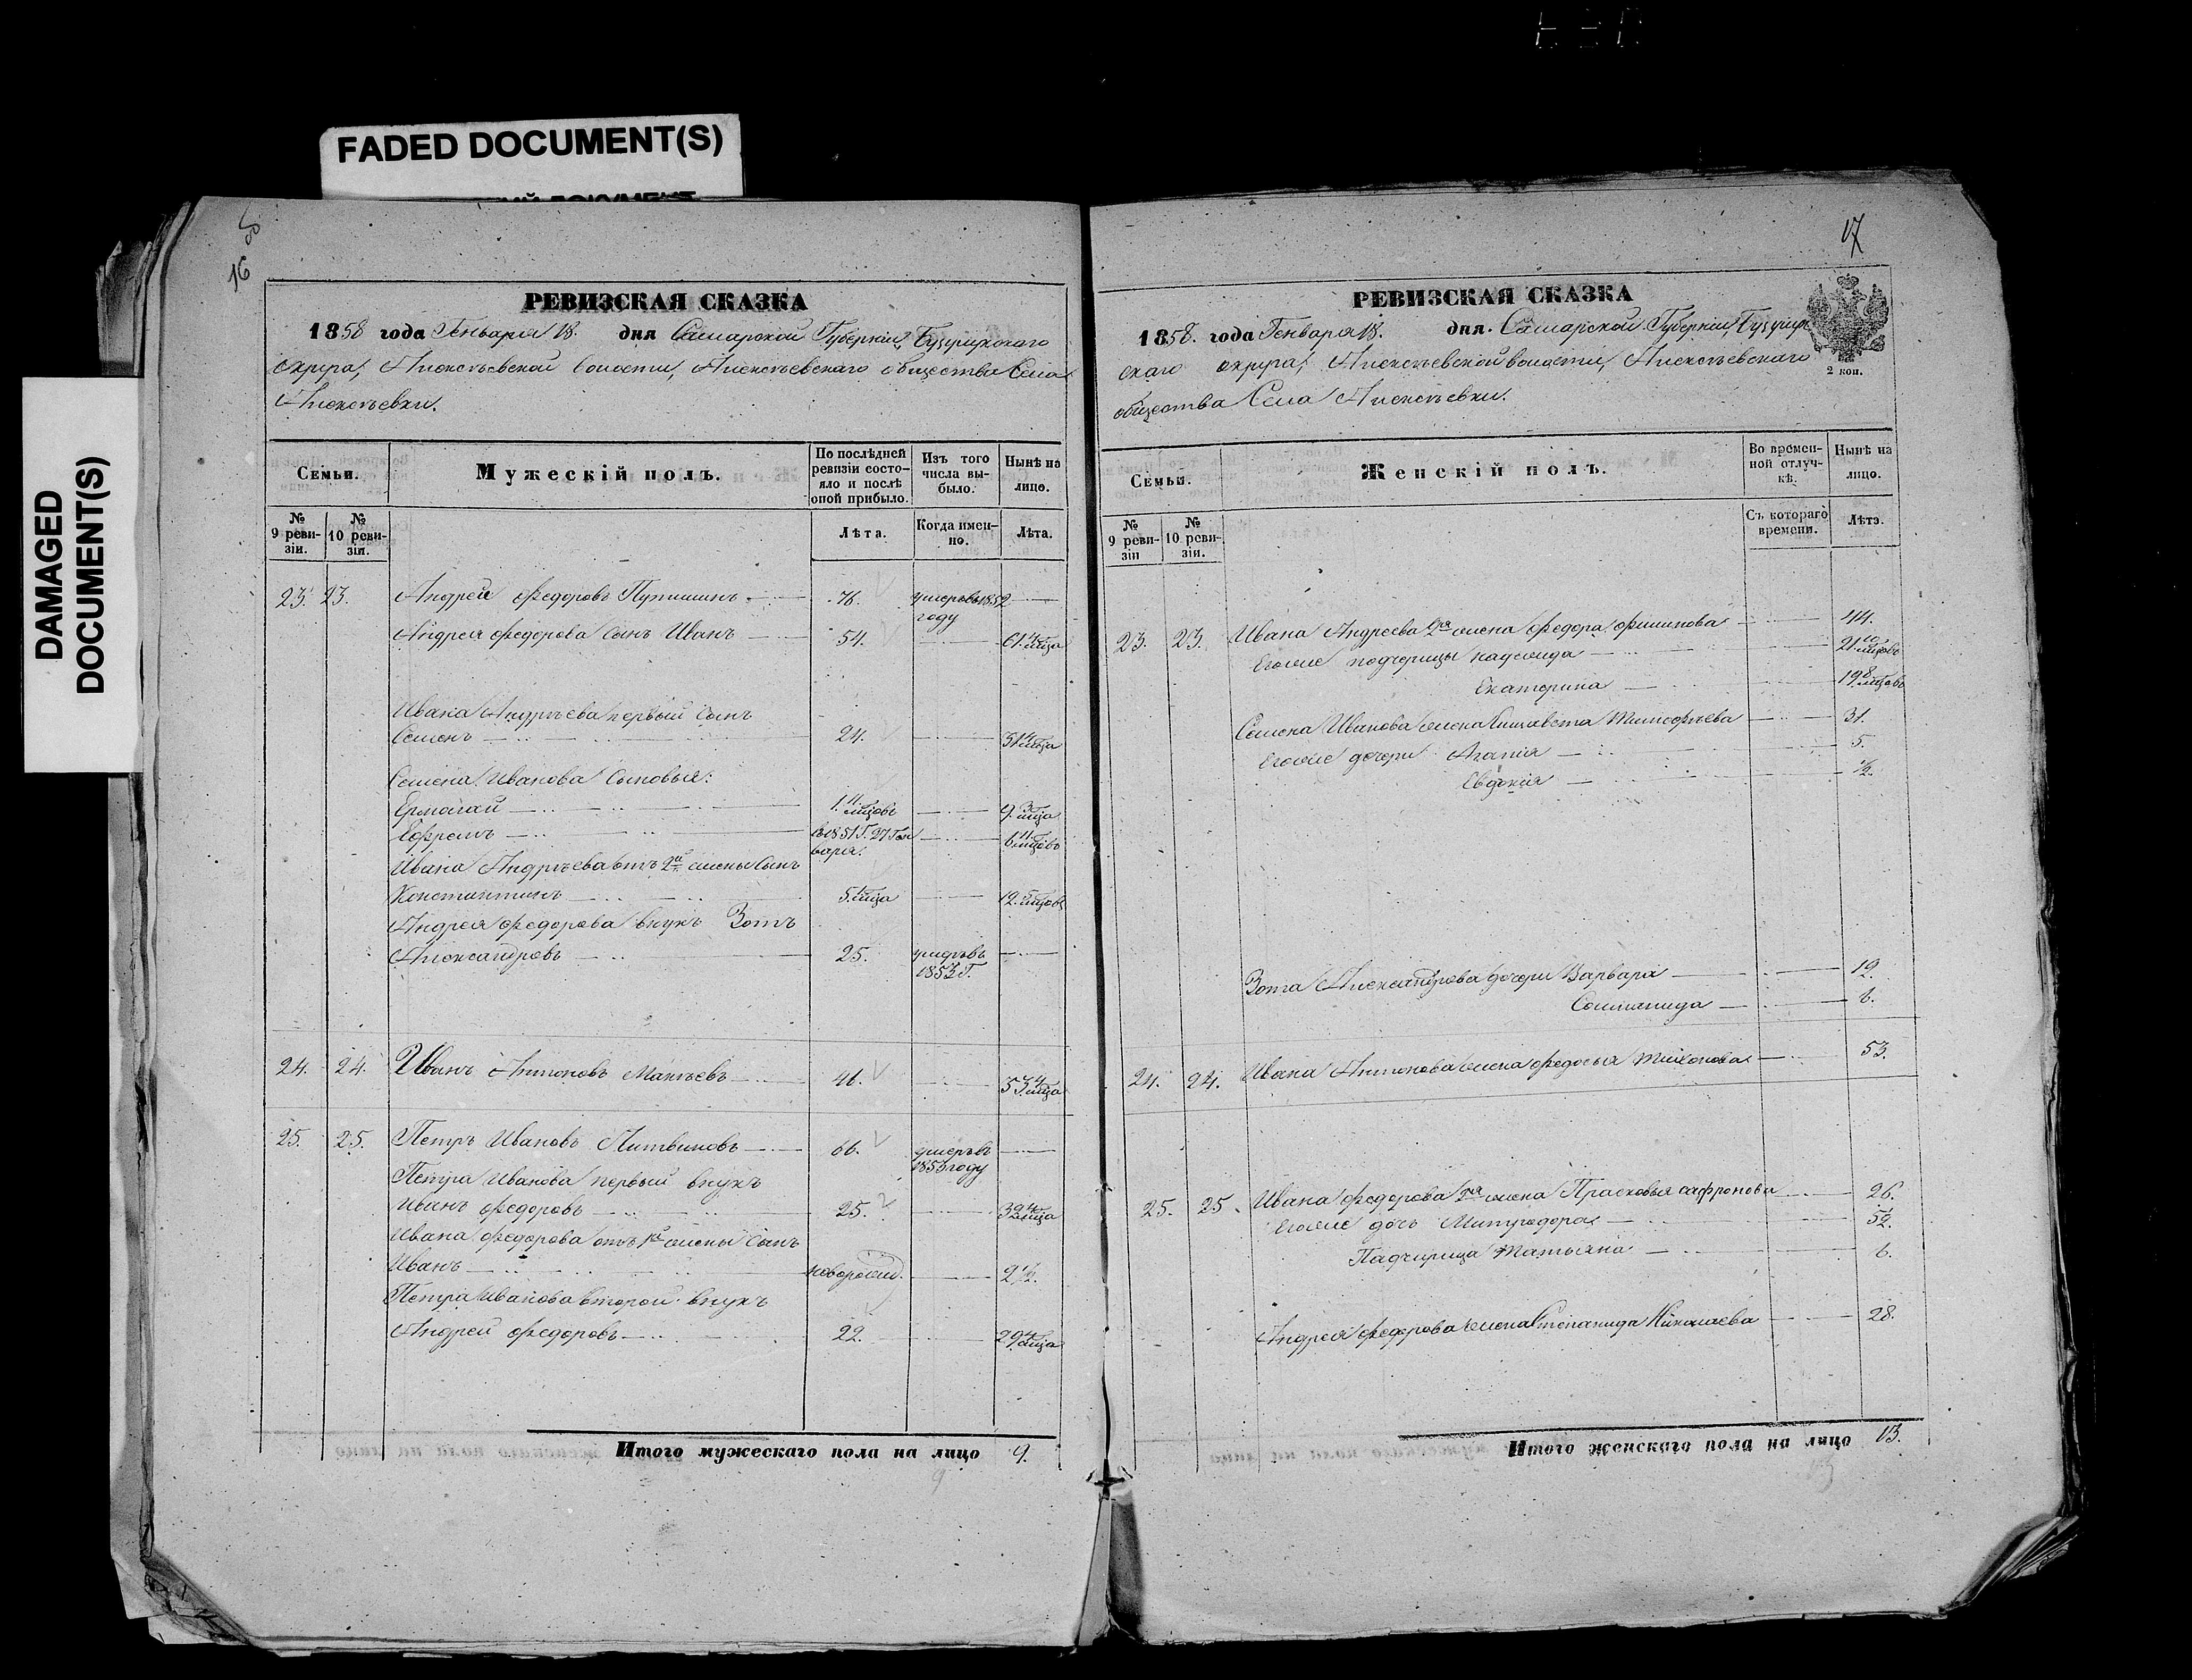 FADED DOCUMENT(S)
DAMAGED
DOCUMENT(S)
16
РЕВИЗСКАЯ СКАЗКА
1858 года Генваря 18. дня Самарской Губернии, Бузулукского
округа, Алексеевской волости, Алексеевскаго общества Села
Алексеевки.
Семьи.
Мужескій полъ.
По послѣдней ревизіи состо-яло и послѣ оной прибыло.
Изъ того числа вы-было.
Нынѣ на лицо.
№ 9 реви-зіи.
№ 10 реви-зіи.
Лѣта.
Когда имен-но.
Лѣта.
23. 23. Андрей Федоровъ 76. умеръ въ 1852 году
Андрея Федорова сынъ Иванъ 54. 61. 4 мца
Ивана Андреева первый сынъ
Семенъ 24. 31. 4 мца
Семена Иванова сыновья:
Ермолай 1. 11 мцовъ 9. 3 мца
Ефремъ въ 1851 г. 27 Генваря. 6. 11 мцовъ
Ивана Андреева отъ 2й жены сынъ
Константинъ 5. 1 мца 12. 5 мцовъ
Андрея Федорова внукъ Зотъ
Александровъ 25. умеръ въ 1853 г.
24. 24. Иванъ Антоновъ 46. 53. 4 мца
25. 25. Петръ Ивановъ Литвиновъ 66. умеръ въ 1853 году
Петра Иванова первый внукъ
Иванъ Федоровъ 25. 32. 4 мца
Ивана Федорова отъ 1й жены сынъ
Иванъ новорожд. 2 1/2.
Петра Иванова второй внукъ
Андрей Федоровъ 22. 29. 4 мца
Итого мужескаго пола на лицо 9.
17
РЕВИЗСКАЯ СКАЗКА
1858. года Генваря 18. дня. Самарской Губернии, Бузулук
скаго округа, Алексеевской волости, Алексеевскаго
общества Села Алексеевки.
2 коп.
Семьи.
Женскій полъ.
Во времен-ной отлуч-кѣ.
Нынѣ на лицо.
№ 9 реви-зіи
№ 10 реви-зіи.
Съ котораго времени.
Лѣта.
23. 23. Ивана Андреева 2я жена Федора Филипова 44.
Его же подчерицы Надежда 21. 10 мцовъ
Екатерина 19. 8 мцовъ
Семена Иванова жена Елизавета Тимофеева 31.
Его же дочери Агапія 5.
Евдокія 1/2.
Зота Александрова дочери Варвара 12.
Соломанида 6.
24. 24. Ивана Антонова жена Федосья Тихонова 53.
25. 25. Ивана Федорова 2я жена Прасковья Сафронова 26.
Его же дочь Митродора 5 1/2.
Падчирица Татьяна 6.
Андрея Федорова жена Степанида Николаева 28.
Итого женскаго пола на лицо 13.